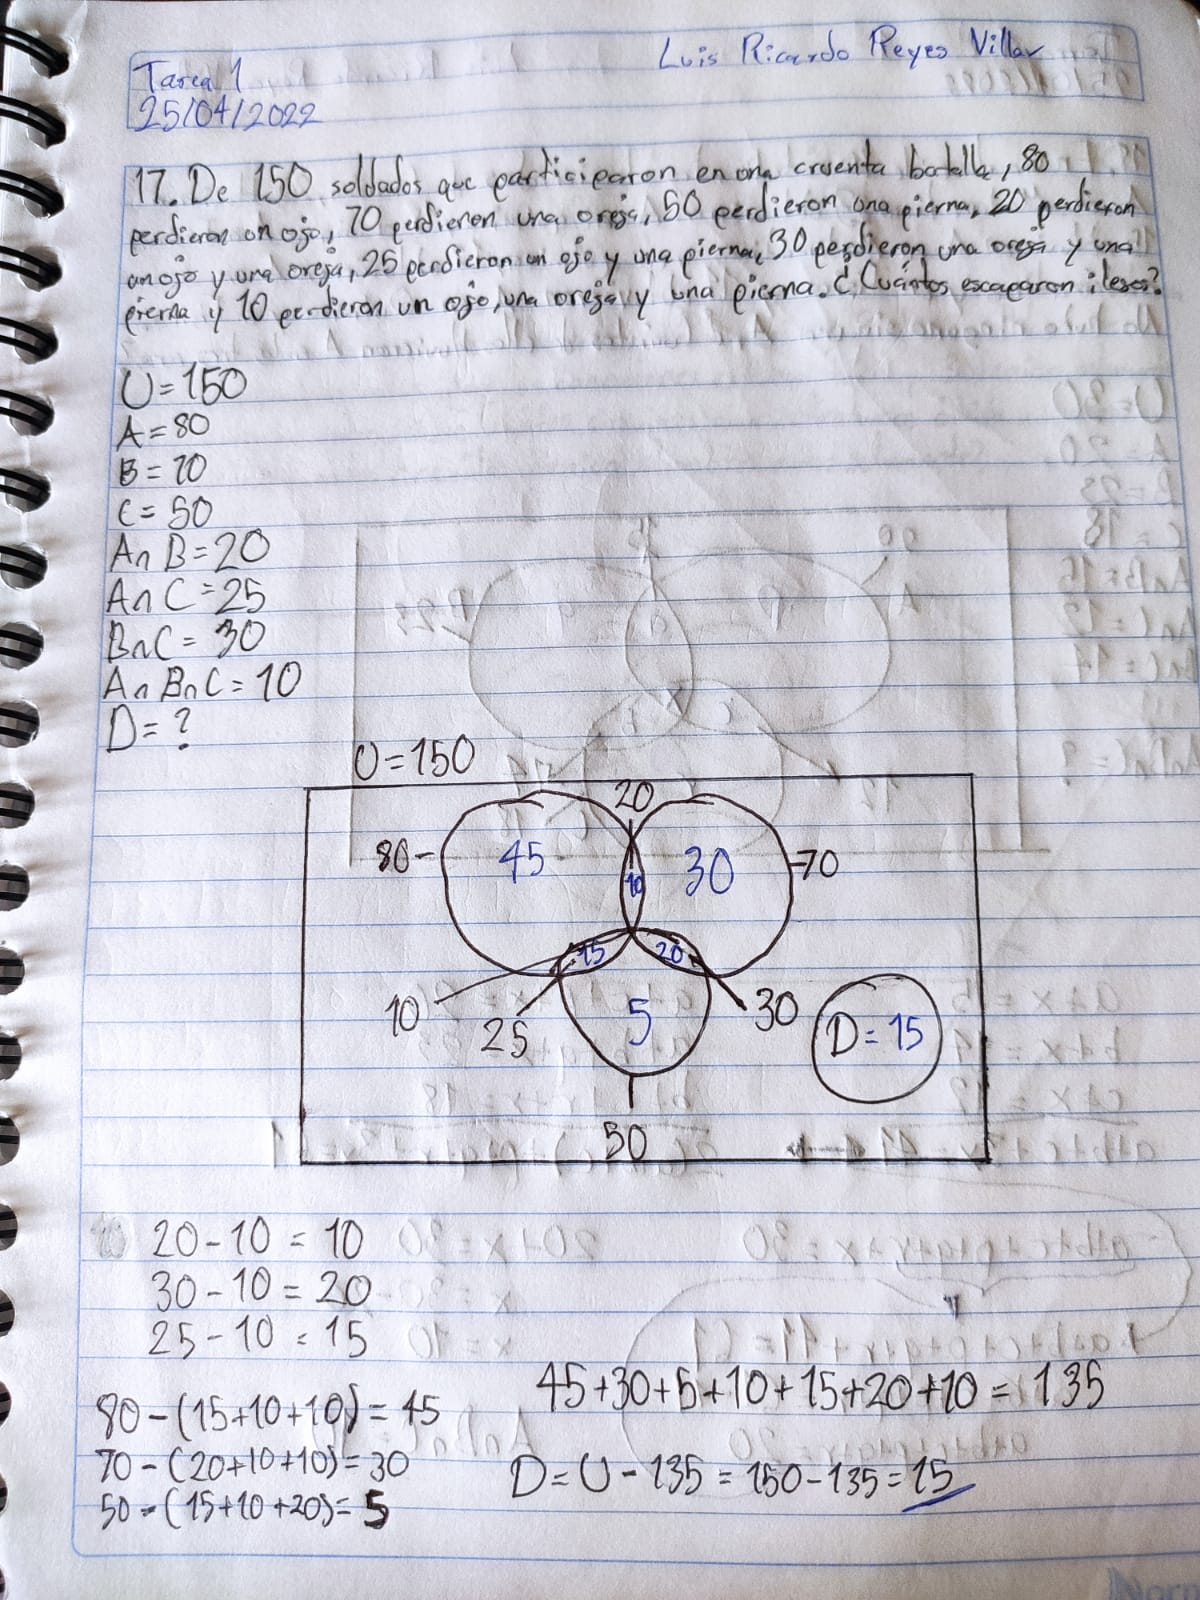 Luis Ricardo Reyes Villar
Tarea 1
25/04/2022
17. De 150 soldados que participaron en una cruenta batalla, 80
perdieron un ojo, 70 perdieron una oreja, 50 perdieron una pierna, 20 perdieron
un ojo y una oreja, 25 perdieron un ojo y una pierna, 30 perdieron una oreja y una
pierna y 10 perdieron un ojo, una oreja y una pierna. ¿Cuántos escaparon ilesos?
U=150
A=80
B=70
C=50
A∩B=20
A∩C=25
B∩C=30
A∩B∩C=10
D=?
U=150
20
80
45
10
30
70
15
20
10
25
5
30
D=15
50
20-10=10
30-10=20
25-10=15
45+30+5+10+15+20+10=135
80-(15+10+10)=45
70-(20+10+10)=30
D=U-135=150-135=15
50-(15+10+20)=5